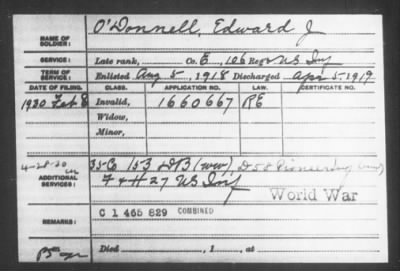 NAME OF SOLDIER: O'Donnell, Edward J
SERVICE: Late rank, Co. E, 106 Reg't US Inf
TERM OF SERVICE: Enlisted Aug 5, 1918 Discharged Apr 5, 1919
DATE OF FILING. CLASS. APPLICATION NO. LAW. CERTIFICATE NO.
1930 Feb 8 Invalid, 1660667 RE
Widow,
Minor,
4-28-30
ADDITIONAL SERVICES: 35-Co 153 DB (WW), D 58 Pioneer Inf
F & H 27 US Inf
World War
REMARKS: C 1 465 829 COMBINED
Died , 1 , at